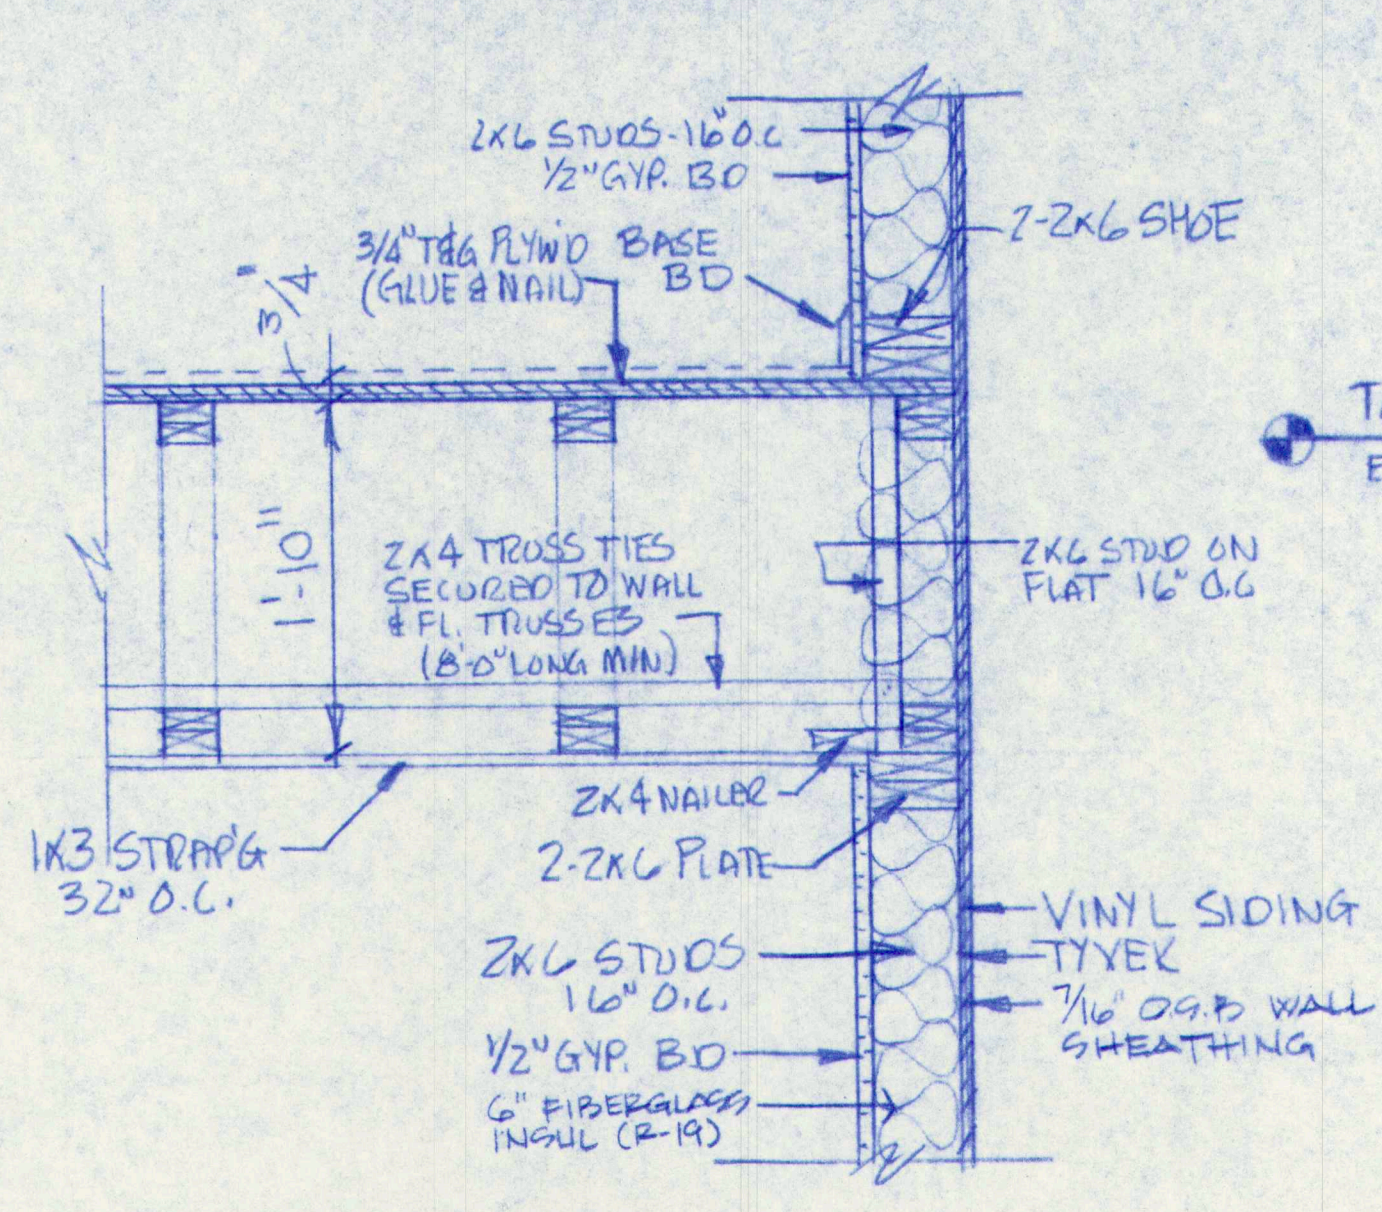 2X6 STUDS-16" O.C
1/2" GYP. BD
2-2X6 SHOE
3/4" T&G PLYW'D
(GLUE & NAIL)
BASE
BD
3/4"
1'-10"
2X4 TRUSS TIES
SECURED TO WALL
& FL. TRUSSES
(8'-0" LONG MIN)
2X6 STUD ON
FLAT 16" O.C
2X4 NAILER
2-2X6 PLATE
1X3 STRAP'G
32" O.C.
2X6 STUDS
16" O.C.
1/2" GYP. BD
6" FIBERGLASS
INSUL (R-19)
VINYL SIDING
TYVEK
7/16" O.S.B WALL
SHEATHING